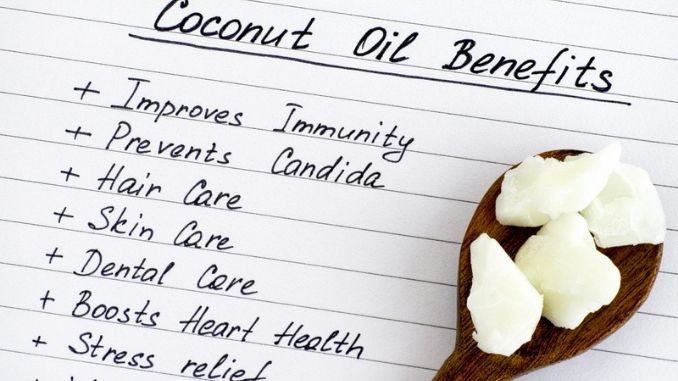 Coconut Oil Benefits
+ Improves Immunity
+ Prevents Candida
+ Hair Care
+ Skin Care
+ Dental Care
+ Boosts Heart Health
+ Stress relief